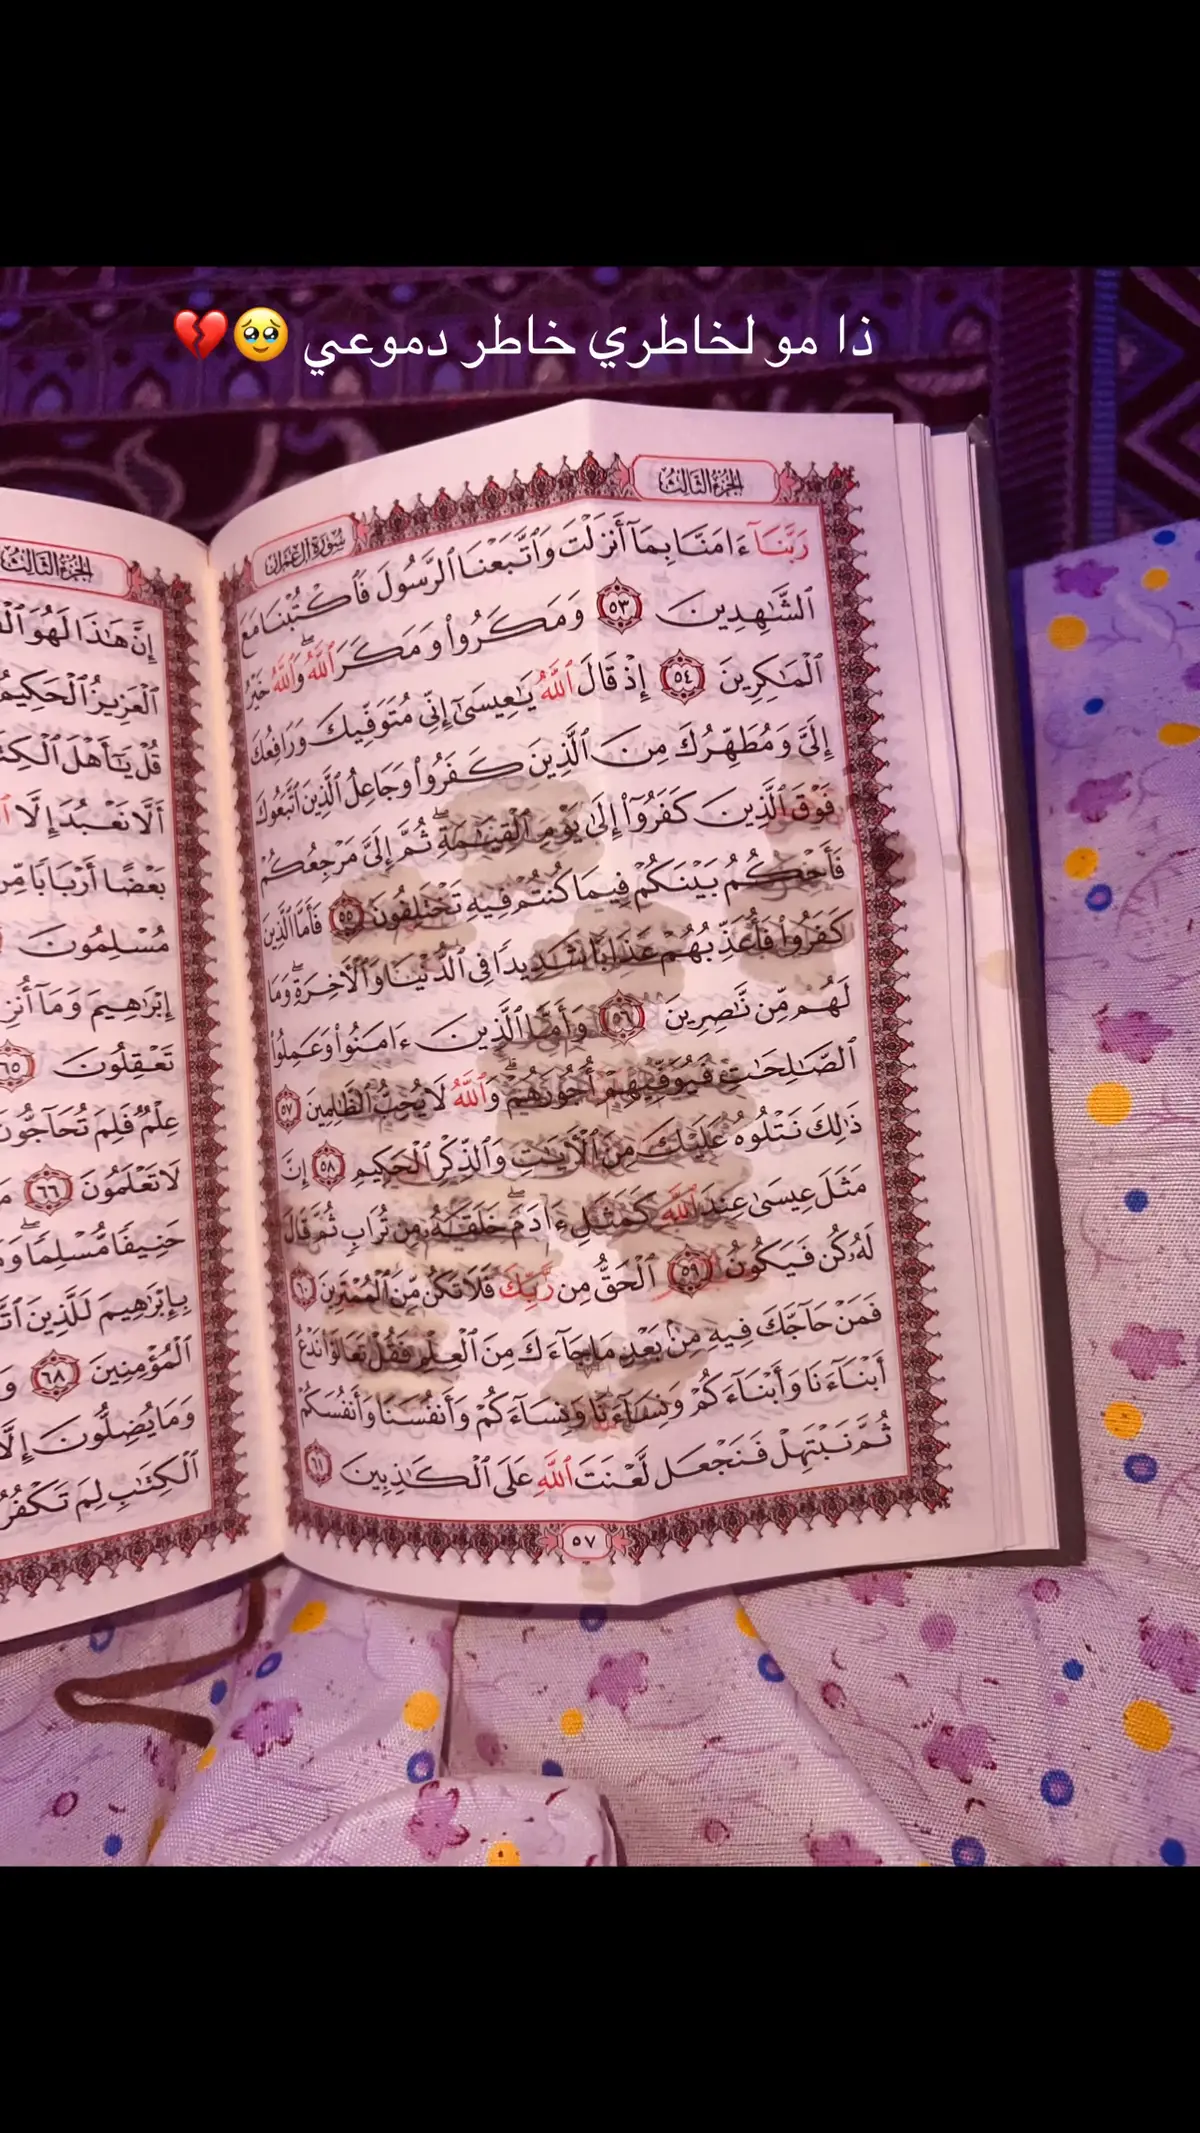 ذا مو لخاطري خاطر دموعي 🥹💔
الجزء الثالث
سورة آل عمران
رَبَّنَآ ءَامَنَّا بِمَآ أَنزَلْتَ وَٱتَّبَعْنَا ٱلرَّسُولَ فَٱكْتُبْنَا مَعَ
ٱلشَّٰهِدِينَ ٥٣ وَمَكَرُوا۟ وَمَكَرَ ٱللَّهُ ۖ وَٱللَّهُ خَيْرُ
ٱلْمَٰكِرِينَ ٥٤ إِذْ قَالَ ٱللَّهُ يَٰعِيسَىٰٓ إِنِّى مُتَوَفِّيكَ وَرَافِعُكَ
إِلَىَّ وَمُطَهِّرُكَ مِنَ ٱلَّذِينَ كَفَرُوا۟ وَجَاعِلُ ٱلَّذِينَ ٱتَّبَعُوكَ
فَوْقَ ٱلَّذِينَ كَفَرُوٓا۟ إِلَىٰ يَوْمِ ٱلْقِيَٰمَةِ ۖ ثُمَّ إِلَىَّ مَرْجِعُكُمْ
فَأَحْكُمُ بَيْنَكُمْ فِيمَا كُنتُمْ فِيهِ تَخْتَلِفُونَ ٥٥ فَأَمَّا ٱلَّذِينَ
كَفَرُوا۟ فَأُعَذِّبُهُمْ عَذَابًا شَدِيدًا فِى ٱلدُّنْيَا وَٱلْءَاخِرَةِ وَمَا
لَهُم مِّن نَّٰصِرِينَ ٥٦ وَأَمَّا ٱلَّذِينَ ءَامَنُوا۟ وَعَمِلُوا۟
ٱلصَّٰلِحَٰتِ فَيُوَفِّيهِمْ أُجُورَهُمْ ۗ وَٱللَّهُ لَا يُحِبُّ ٱلظَّٰلِمِينَ ٥٧
ذَٰلِكَ نَتْلُوهُ عَلَيْكَ مِنَ ٱلْءَايَٰتِ وَٱلذِّكْرِ ٱلْحَكِيمِ ٥٨ إِنَّ
مَثَلَ عِيسَىٰ عِندَ ٱللَّهِ كَمَثَلِ ءَادَمَ ۖ خَلَقَهُۥ مِن تُرَابٍ ثُمَّ قَالَ
لَهُۥ كُن فَيَكُونُ ٥٩ ٱلْحَقُّ مِن رَّبِّكَ فَلَا تَكُن مِّنَ ٱلْمُمْتَرِينَ ٦٠
فَمَنْ حَآجَّكَ فِيهِ مِنۢ بَعْدِ مَا جَآءَكَ مِنَ ٱلْعِلْمِ فَقُلْ تَعَالَوْا۟ نَدْعُ
أَبْنَآءَنَا وَأَبْنَآءَكُمْ وَنِسَآءَنَا وَنِسَآءَكُمْ وَأَنفُسَنَا وَأَنفُسَكُمْ
ثُمَّ نَبْتَهِلْ فَنَجْعَل لَّعْنَتَ ٱللَّهِ عَلَى ٱلْكَٰذِبِينَ ٦١
٥٧
الجزء الثالث
إِنَّ هَٰذَا لَهُوَ
ٱلْعَزِيزُ ٱلْحَكِيمُ
قُلْ يَٰٓأَهْلَ
أَلَّا نَعْبُدَ إِلَّا
بَعْضًا أَرْبَابًا مِّن
مُسْلِمُونَ
إِبْرَٰهِيمَ وَمَآ
تَعْقِلُونَ ٦٥
عِلْمٌ فَلِمَ تُحَآجُّونَ
لَا تَعْلَمُونَ ٦٦
حَنِيفًا مُّسْلِمًا
بِإِبْرَٰهِيمَ لَلَّذِينَ
ٱلْمُؤْمِنِينَ ٦٨
وَمَا يُضِلُّونَ إِلَّآ
ٱلْكِتَٰبِ لِمَ تَكْفُرُ